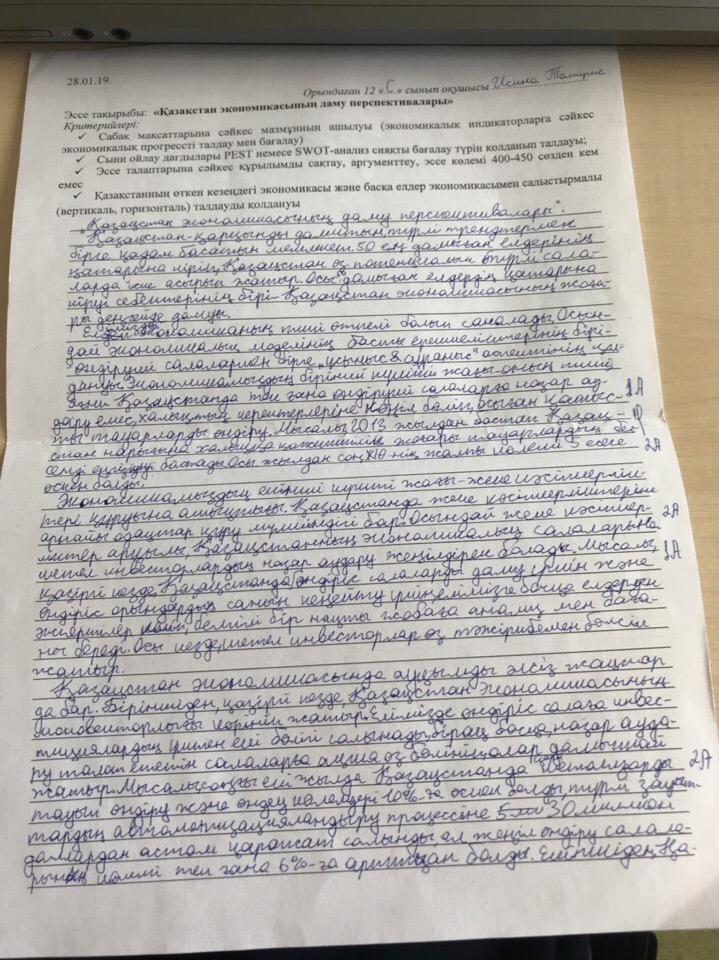 28.01.19.
Орындаған 12 «С» сынып оқушысы Исина Томирис
Эссе тақырыбы: «Қазақстан экономикасының даму перспективалары»
Критерийлері:
✓ Сабақ мақсаттарына сәйкес мазмұнның ашылуы (экономикалық индикаторларға сәйкес
экономикалық прогрессті талдау мен бағалау)
✓ Сыни ойлау дағдылары PEST немесе SWOT-анализ сияқты бағалау түрін қолданып талдауы;
✓ Эссе талаптарына сәйкес құрылымды сақтау, аргументтеу, эссе көлемі 400-450 сөзден кем
емес
✓ Қазақстанның өткен кезеңдегі экономикасы және басқа елдер экономикасымен салыстырмалы
(вертикаль, горизонталь) талдауды қолдануы
„Қазақстан экономикасының даму перспективалары".
Қазақстан-қарқынды дамитын, түрлі трендтермен
бірге қадам басатын мемлекет. 50 ең дамыған елдерінің
қатарына кіріп, Қазақстан өз потенциалын түрлі сала-
ларда іске асырып жатыр. Осы дамыған елдердің қатарына
кіруі себептерінің бірі-Қазақстан экономикасының жоға-
ры деңгейде дамуы.
Еліміздегі экономиканың типі өтпелі болып саналады. Осын-
дай экономикалық моделінің басты ерекшеліктерінің бірі-
өндіруші салалармен бірге „ұсыныс & сұраныс" аспектінің
Экономикамыздың бірінші күшті жағы-оның типі,
яғни Қазақстанда тек ғана өндіруші салаларға назар ау-
дару емес, халықтың керектерлеріне көңіл бөліп, осыған қатыс-
ты тауарларды өндіру. Мысалы, 2013 жылдан бастап Қазақ-
стан нарығына халыққа қажеттілік жоғары тауарлардың бел-
сенді енгізуді бастады. Осы жылдан соң ЖІӨ-нің жалпы көлемі 5 есе
өскен болды.
Экономикамыздың екінші күшті жағы-жеке кәсіпкерлік-
тері құруына ашықтығы. Қазақстанда жеке кәсіпкерліктеріне
арнайы одақтар құру мүмкіндігі бар. Осындай жеке кәсіпкер-
ліктер арқылы, Қазақстанның экономикалық салаларына
шетел инвесторлардың назар аудару жеңілдірек болады. Мысалы,
қазіргі кезде Қазақстанда өндіріс салаларды даму үшін және
өндіріс орындардың санын кеңейту үшін, елімізге басқа елдерден
эксперттер келіп, белгілі бір нақты жобаға анализ мен баға-
ны береді. Осы кезде, шетел инвесторлар өз тәжірибемен бөлісіп
жатыр.
Қазақстан экономикасында ауқымды әлсіз жақтар
да бар. Біріншіден, қазіргі кезде, Қазақстан экономикасының
моновекторлығы көрініп жатыр. Елімізде өндіріс салаға инвес-
тициялардың үлкен екі бөлігі салынады, бірақ басқа, назар ауда-
ру талап ететін салаларға ақша өз бөлініп, олар дамытпай
жатыр. Мысалы, соңғы екі жылда Қазақстанда металдарды
тауып өндіру және өңдеу көлемдері 10%-ға өскен болды, түрлі
тардың автоматизацияландыру процессіне 30 миллион
доллардан астам қаражат салынды, ал жеңіл өндіру салала-
рының көлемі тек ғана 6%-ға артқан болды. Екіншіден, Қа-
1А
2А
2А
1А
2А